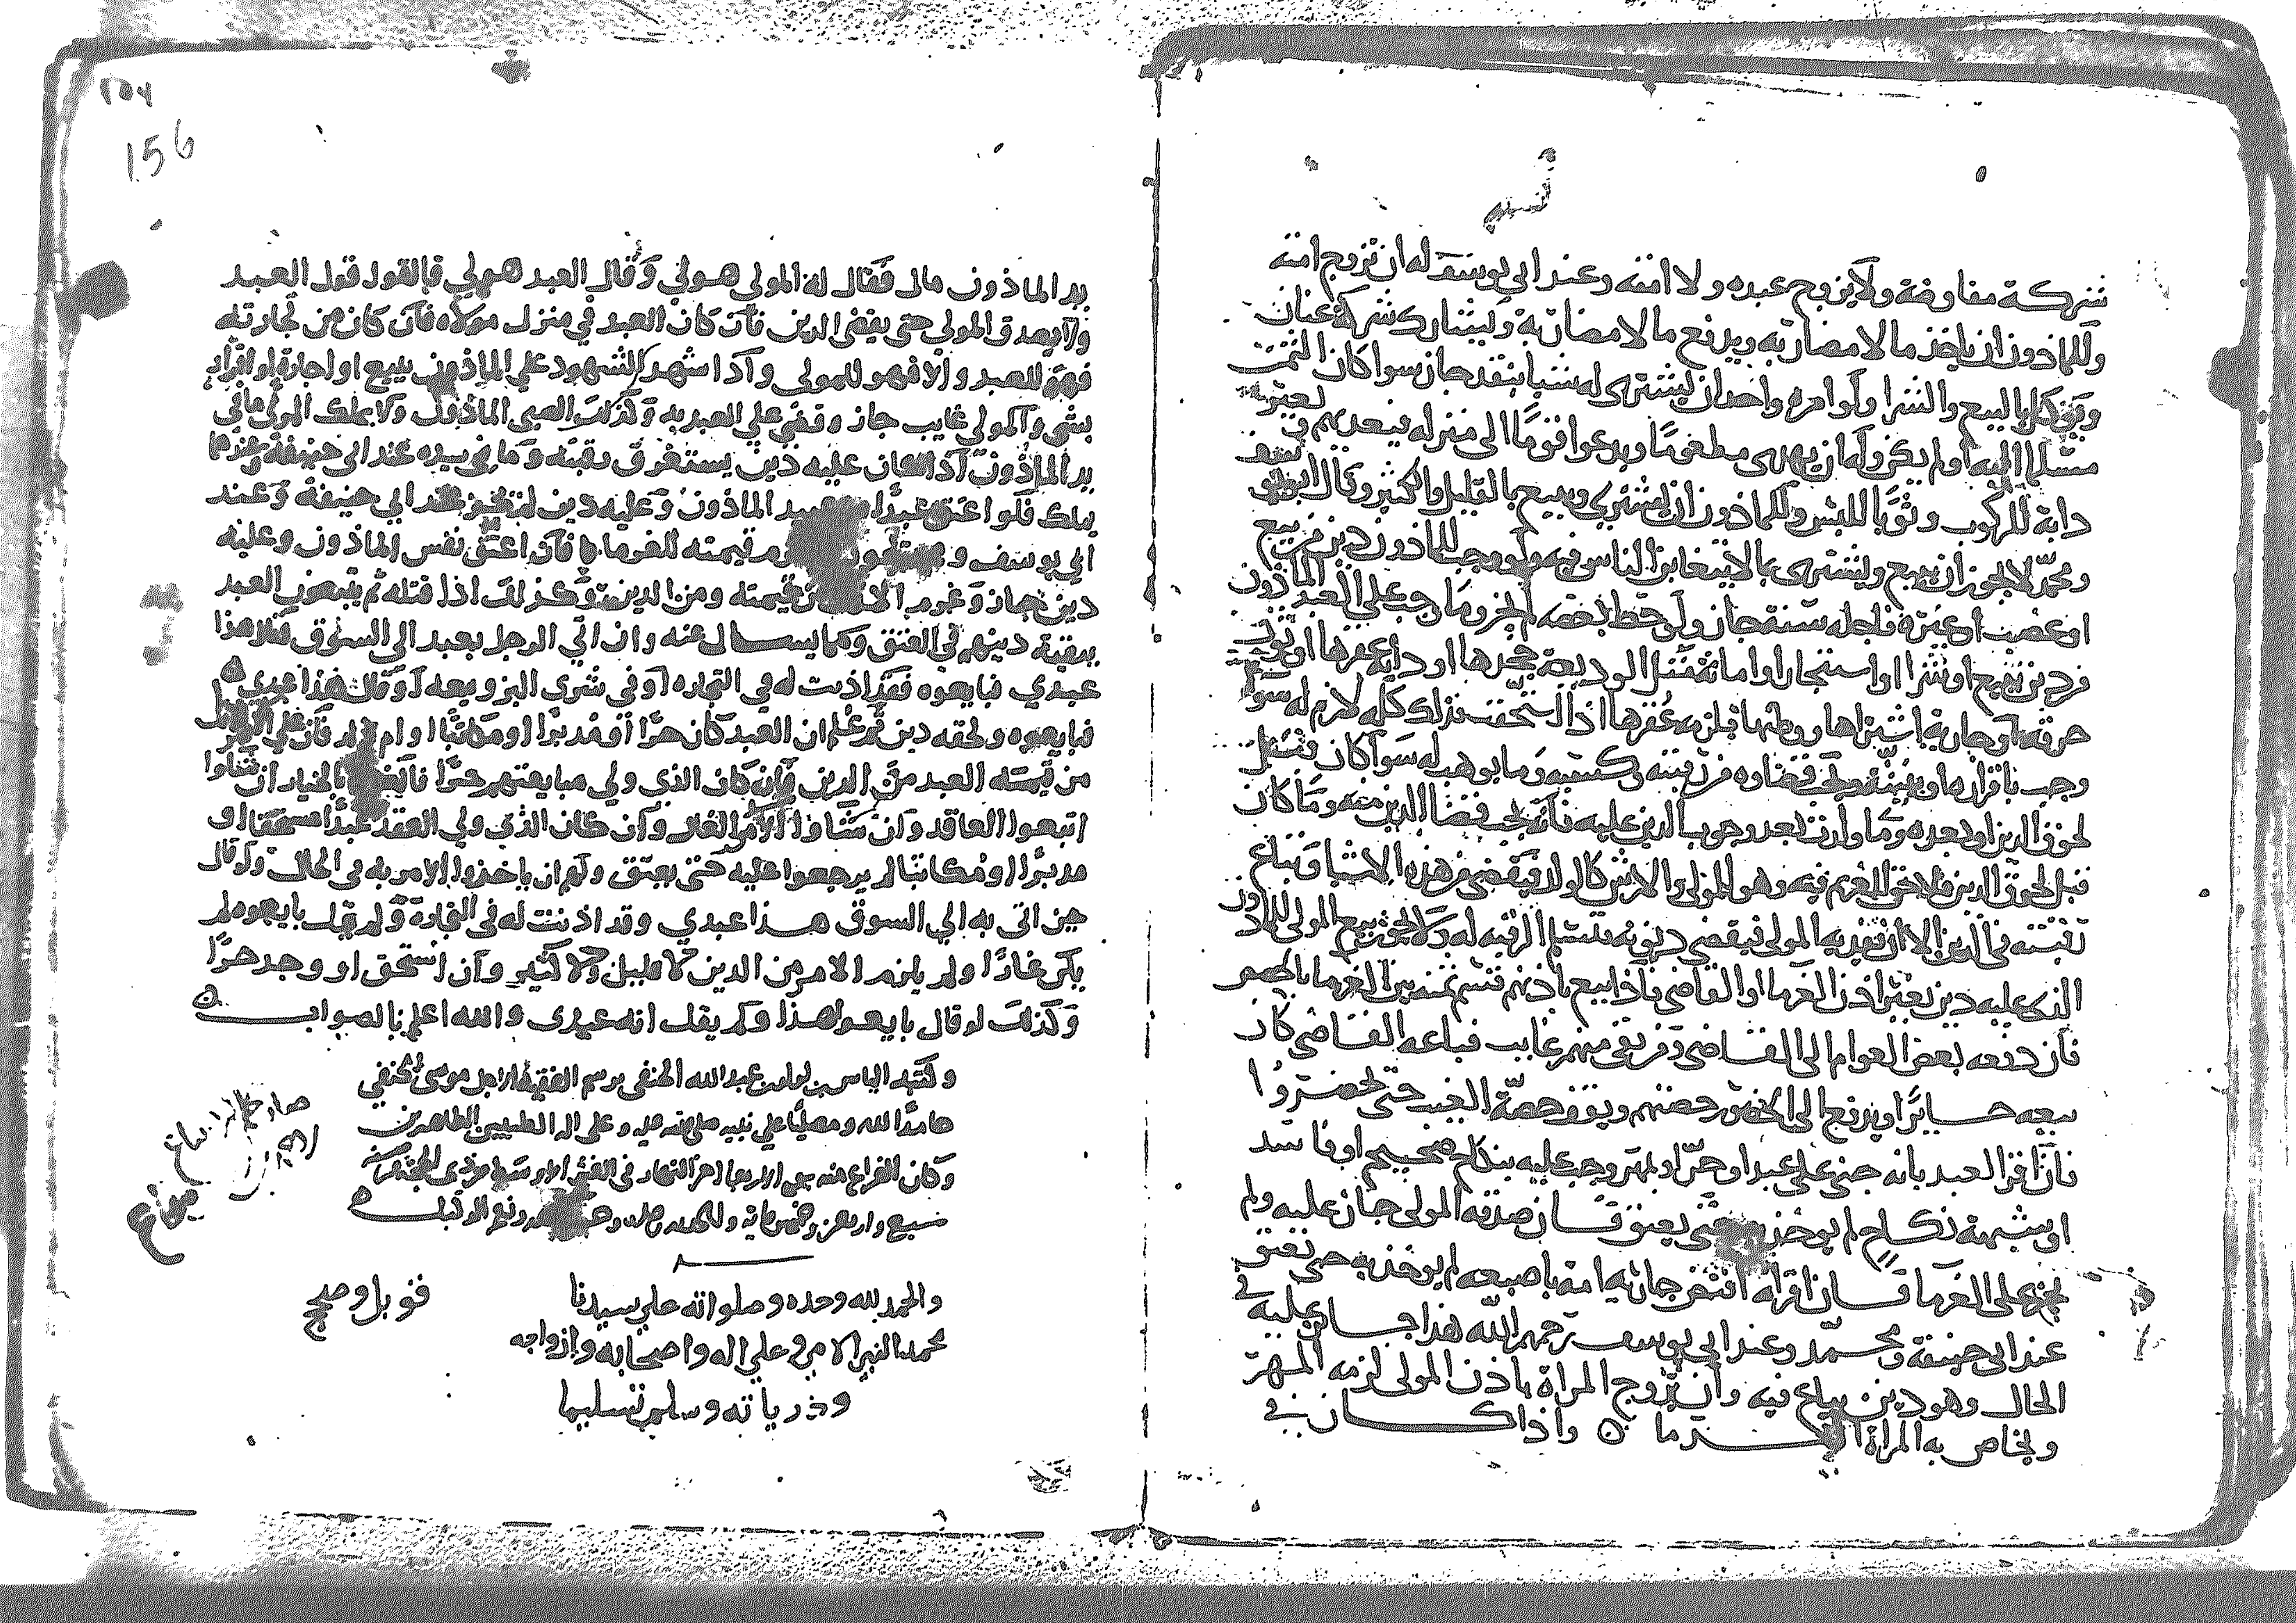 شركة مفاوضة ولا يزوج عبده ولا امته وعند ابي يوسف له ان يزوج امته
وللماذون ان ياخذ مالا مضاربه ويدفع مالا مضاربة ويشارك شركة عنان
ويوكل بالبيع والشرا ولو امره واحد ان يشترى له شيا بنقد جاز سوا كان الثمن
مسلما اليه او لم يكن وله ان يهدى مطعوما ويدعوا قوما الى منزله فيغديهم ويعير
دابة للركوب وثوبا للبس وللماذون ان يشترى ويبيع بالقليل والكثير وقال ابو يوسف
ومحمد لا يجوز ان يبيع ويشترى بما لا يتغابن الناس فيه ولو وجب للماذون دين من بيع
او غصب او غيره فاجله سنة جاز ولو حط بعضه لم يجز وما وجب على العبد الماذون
من دين ببيع او شرا او استيجار او امانة مثل الوديعة جحدها او دابة عقرها او ثوب
حرقه او جارية اشتراها ووطيها فلزمه عقرها اذا استحقت فذلك كله لازم له سوا
وجب باقراره او ببينة وعلى قضاوه من رقبته وكسبه وما يوهب له سوا كان قبل
لحوق الدين او بعده وما ولدت بعد وجوب الدين عليه فانه يجب قضا الدين منه وما كان
قبل لحوق الدين فلا حق للغريم فيه وهو للمولى والارش كالولد فيقضى من هذه الاشيا وتباع
رقبته فى الدين الا ان يفديه المولى فيقضى ديونه فتسلم الرقبة له ولا يجوز بيع المولى للماذون
الذى عليه دين بغير اذن الغرما او القاضى فاذا بيع باذنهم قسم ثمنه بين الغرما بالحصص
فان دفعه بعض الغرما الى القاضى وفريق منهم غايب فباعه القاضى كان
بيعه جايزا ويدفع الى الحضور حصتهم ويوقف حصة الغيب حتى يحضروا
فان اقر العبد بانه جنى على عبد او حر او بمهر وجب عليه بنكاح صحيح او فاسد
او بشبهة نكاح لم يوخذ به حتى يعتق فان صدقه المولى جاز عليه ولم
يجز على الغرما فان اقر انه افتض جارية امة باصبعه لم يوخذ به حتى يعتق
عند ابى حنيفة ومحمد وعند ابى يوسف رحمهم الله هذا جايز عليه في
الحال وهو دين يباع فيه وان تزوج المراة باذن المولى لزمه المهر
ويخاص به المراة الغرما ٥ واذا كان في
يد الماذون مال فقال له المولى هو لي وقال العبد هو لي فالقول قول العبد
ولا يصدق المولي حتى يقضى الدين فان كان العبد في منزل مولاه فان كان من تجارته
فهو للعبد والا فهو للمولى واذا شهد الشهود علي الماذون ببيع او اجارة او اقرار
بشى والمولى غايب جاز وقضي علي العبد به وكذلك الصبى الماذون ولا يملك المولى ما في
يد الماذون اذا كان عليه دين يستغرق رقبته وما فى يده عند ابى حنيفة وعندهما
يملك فلو اعتق عبدا من عبيد الماذون وعليه دين لم يجز عند ابي حنيفة وعند
ابي يوسف و قيمته للغرما فان اعتق نفس الماذون وعليه
دين جاز وغرم قيمته ومن الدين وكذلك اذا قتله ثم يتبعون العبد
ببقية دينهم في العتق وكما يسال عنه وان اتي الرجل بعبد الي السوق فقال هذا
عبدي فبايعوه فقد اذنت له في التجاره او في شرى البز وبيعه او قال هذا عبدي
فبايعوه ولحقه دين ثم علم ان العبد كان حرا او مدبرا او مكاتبا او ام ولد فان علي الامر الاقل
من قيمته العبد من الدين وان كان الذي ولي مبايعتهم حرا بالخيار ان شاوا
اتبعوا العاقد وان شاوا الامر الغار وان كان الذي ولي العقد عبدا مستحقا او
مدبرا او مكاتبا لم يرجعوا عليه حتى يعتق ولهم ان ياخذوا الامر به في الحال ولو قال
حين اتى به الي السوق هذا عبدي وقد اذنت له فى التجارة ولم يقل بايعوه لم
يكن غارا ولم يلزم الامر من الدين لا قليل ولا كثير وان استحق او وجد حرا
وكذلك لو قال بايعوا هذا ولم يقل انه عبدى والله اعلم بالصواب
وكتبه الياس بن عبدالله الحنفى برسم الفقيه الاجل موسى الحنفي
حامدا لله ومصليا علي نبيه صلى الله عليه وعلى اله الطيبين الطاهرين
وكان الفراغ منه يوم الاربعا اخر النهار فى العشر الاوسط من ذى الحجة سنة
سبع واربعين وخمسماية والحمد لله وحده ونعم الوكيل
والحمد لله وحده وصلواته علي سيدنا
محمد النبي الامي وعلي اله واصحابه وازواجه
وذرياته وسلم تسليما
قوبل وصحح
156